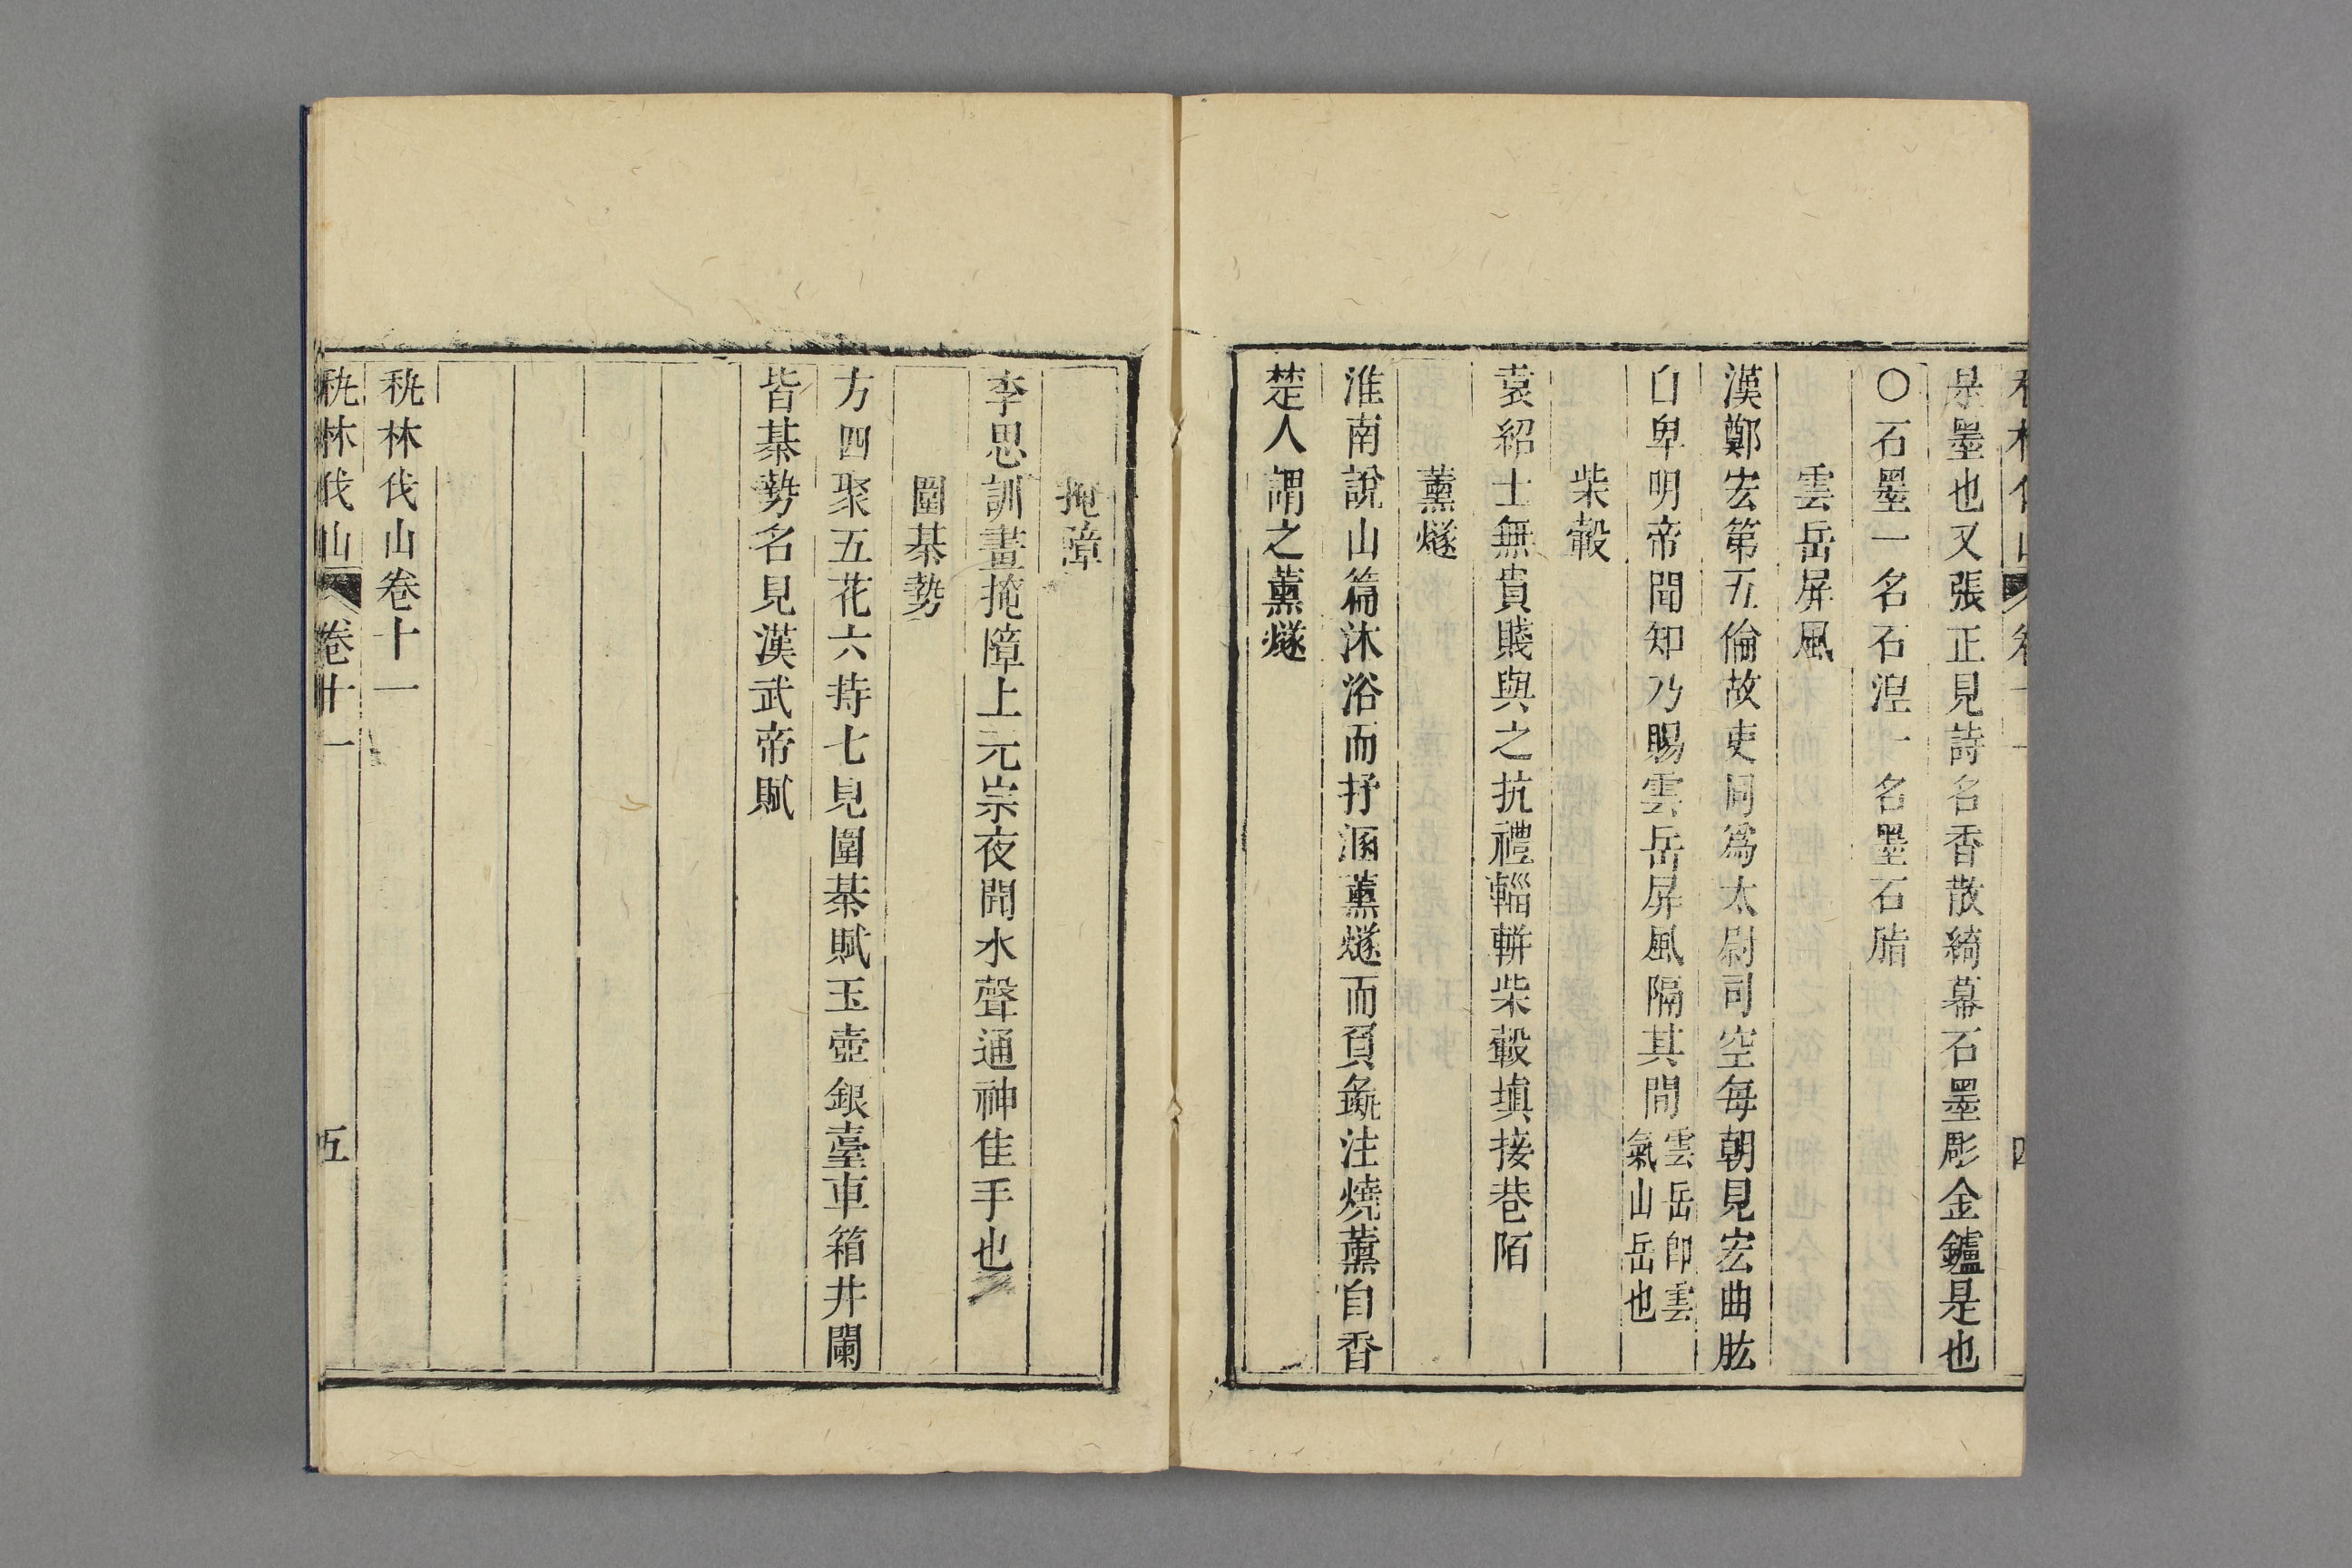 是墨也又張正見詩名香散綺幕石墨彫金鑪是也
○石墨一名石湼一名墨石脂
雲岳屏風
漢鄭宏第五倫故吏同爲太尉司空每朝見宏曲肱
自卑明帝聞知乃賜雲岳屏風隔其間雲岳即雲氣山岳也
柴轂
袁紹士無貴賤與之抗禮輜軿柴轂塡接巷陌
薰燧
淮南說山篇沐浴而抒溷薰燧而負彘注燒薰自香
楚人謂之薰燧
掩障
李思訓畫掩障上元宗夜聞水聲通神隹手也
圍棊勢
方四聚五花六持七見圍棊賦玉壺銀臺車箱井闌
皆棊勢名見漢武帝賦
秇林伐山卷十一
秇林伐山 卷十一 五